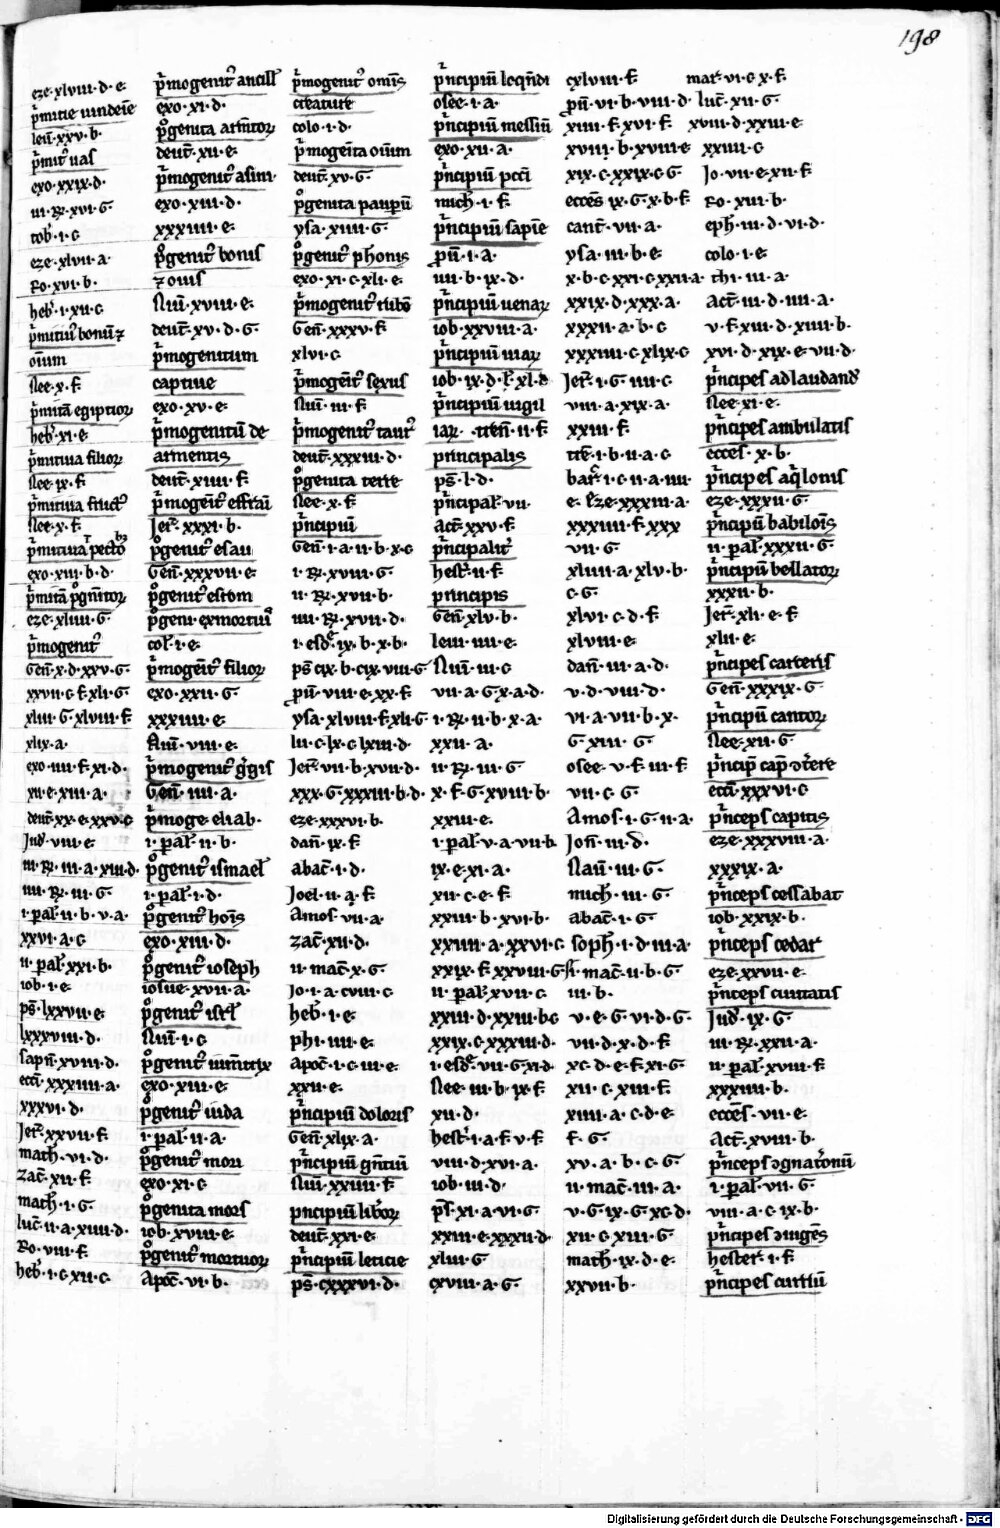 198
eze·xlviii·d·e·
p̄mitie uindeie
leui·xxv·b·
p̄mit᷒ uas
exo·xxix·d·
iii·R̄·xvi·G·
tob·i·c
eze·xlvii·a·
Ro·xvi·b·
heb·i·xii·c
p̄mitiu᷒ bonū ⁊
ouium
Nee·x·f
p̄mitā egiptior
heb·xi·e·
p̄mitiua filior
Nee·ix·f·
p̄mitiua fruct᷒
Nee·x·f
exo·xiii·b·d·
eze·xliiii·G·
p̄mogenit᷒
Gen̄·x·d·xxv·G·
xxvii·c·f·xli·G·
xliii·G·xlviii·f·
xlix·a·
exo·iiii·f·xi·d·
xii·e·xiii·a·
deut̄·xx·e·xxv·c
Jud·viii·e·
iii·R̄·iii·a·xiii·d·
iiii·R̄·iii·G·
i·pal·ii·b·v·a·
xxvi·a·c
ii·pal·xxi·b·
iob·i·e·
ps̄·lxxvii·e·
lxxxviii·d·
sapn̄·xviii·d·
ecci·xxxiiii·a·
xxxvi·d·
Jer·xxvii·f·
math·vi·d·
zac̄·xii·f·
math·i·G·
luc̄·ii·a·xiiii·d·
Ro·viii·f·
heb·i·c·xii·c·
p̄mogenit᷒ ancill
exo·xi·d·
deut̄·xii·e·
p̄mogenit᷒ asini·
exo·xiii·d·
xxxiiii·e·
p̊genit᷒ bouis
⁊ ouis
Nūi·xviii·e·
deut̄·xv·d·G·
p̄mogenitum
captiue
exo·xv·e·
p̄mogenitū de
armentis
deut̄·xiiii·f·
p̄mogeit᷒ effrai
Jer·xxxi·b·
p̊genit᷒ esau
Gen̄·xxxvii·e·
p̊genit᷒ estom
p̊geni exmortui
col·i·e·
p̄mogeit᷒ filior
exo·xxii·G·
xxxiiii·e·
Nūi·viii·e·
p̄mogenit᷒ g̊gis
Gen̄·iiii·a·
p̄moge·eliab·
i·pal·ii·b·
p̊genit᷒ ismael
i·pal·i·d·
p̊genit᷒ hois
exo·xiii·d·
p̊genit᷒ ioseph
iosue·xvii·a·
p̊genit᷒ isrl
Nūi·i·c
exo·xiii·e·
p̊genit᷒ iuda
i·pal·ii·a·
p̊genit᷒ mori
exo·xi·c
p̊genita mors
iob·xviii·e·
p̊genit᷒ mortuor
Apoc̄·vi·b·
p̄mogenit᷒ omīs
creature
colo·i·d·
p̄mogeita ouium
deut̄·xv·G·
p̊genita paupū
ysa·xiiii·G·
p̊genit᷒ phonis
exo·xi·c·xli·e·
p̄mogenit᷒ rubō
Gen̄·xxxv·f·
xlvi·c
p̄mogeit᷒ sexus
Nūi·iii·f·
p̄mogenit᷒ taur᷒
deut̄·xxxiii·d·
p̊genita terre
Nee·x·f·
p̄ncipiū
Gen̄·i·a·ii·b·x·c
i·R̄·xviii·G·
ii·R̄·xvii·b·
iiii·R̄·xvii·d·
ps̄·cix·b·cix·viii·G
pū·viii·e·xx·f·
ysa·xlviii·f·xli·G·
lii·c·lx·c·lxiii·d
Jer·vii·b·xvii·d·
xxx·G·xxxiii·b·d·
eze·xxxvi·b·
dan̄·ix·f·
abac̄·i·d·
Joel·ii·a·f·
Amos·vii·a·
zac̄·xii·d·
ii·mac̄·x·G·
Jo·i·a·cviii·c
heb·i·e·
phi·iiii·e·
Apoc̄·i·c·iii·e·
xxii·e·
p̄ncipiū doloris
Gen̄·xlix·a·
p̄ncipiū gn̄tiū
Nūi·xxiiii·f·
p̄ncipiū libor
deut̄·xxi·e·
p̄ncipiū leticie
ps̄·cxxxvi·d·
p̄ncipiū loqn̄di
osee·i·a·
p̄ncipiū messiū
exo·xii·a·
p̄ncipiū pcci
mich·i·f·
p̄ncipiū sapie
pū·i·a·
iiii·b·ix·d·
p̄ncipiū uenar
iob·xxviii·a·
p̄ncipiū uiar
p̄ncipiū uigil
iar· tren̄·ii·f·
principalis
ps̄·l·d·
p̄ncipal·vii·
Act̄·xxv·f·
p̄ncipalit᷒
hest·ii·f·
principis
Gen̄·xlv·b·
leui·iiii·e·
Nūi·iii·c
vii·a·G·x·a·d·
i·R̄·ii·b·x·a·
xxii·a·
ii·R̄·iii·G·
x·f·G·xviii·b·
xxiii·e·
i·pal·v·a·vii·b·
ix·e·xi·a·
xii·c·e·f·
xxiii·b·xvi·b·
xxiiii·a·xxvi·c
xxix·f·xxviii·G·
ii·pal·xvii·c·
xxiii·d·xxiii·b·c
xxix·c·xxxiii·d·
i·esd̄·vii·G·xi·d·
Nee·iii·b·ix·f·
xii·d·
hest·i·a·f·v·f·
viii·d·xvi·a·
iob·iii·d·
ps̄·xi·a·vi·G·
xxiii·e·xxxii·d·
xliii·G·
cxviii·a·G·
cxlviii·f·
pū·vi·b·viii·d·
xiiii·f·xvi·f·
xviii·b·xviii·e
xix·c·xxix·c·G·
ecces̄·ix·G·x·b·f·
cant̄·vii·a·
ysa·iii·b·e·
x·b·c·xxi·c·xxii·a·
xxix·d·xxx·a·
xxxii·a·b·c
xxxiiii·c·xlix·c
Jer·i·G·iiii·c
viii·a·xix·a·
xxiii·f·
tre·i·b·ii·a·c·
bar·i·c·ii·a·iiii·
e·Eze·xxxiii·a·
xxxiiii·f·xxx
vii·G·
xliiii·a·xlv·b·
c·G·
xlvi·c·d·f·
xlviii·e·
dan̄·iii·a·d·
v·d·viii·d·
vi·a·vii·b·x·
G·xiii·G·
osee·v·f·iii·f·
vii·c·G·
Amos·i·G·ii·a·
Jon̄·iii·d·
Naū·iii·G·
mich·iii·G·
abac̄·i·G·
soph·i·d·iii·a·
i·mac̄·ii·b·G·
iii·b·
v·e·G·vi·d·G·
vii·d·x·d·f·
xc·d·e·f·xi·G·
xii·c·xiii·f·
xiiii·a·c·d·e·
f·G·
xv·a·b·c·G·
ii·mac̄·iii·a·
v·G·ix·G·xc·d·
xii·c·xiii·G·
math·ix·d·e·
xxvii·b·
mar·vi·c·x·f·
luc̄·xii·G·
xviii·d·xxiii·e·
xxiiii·c
Jo·vii·e·xii·f·
Ro·xvi·b·
eph·iii·d·vi·d·
colo·i·e·
thi·iii·a·
Act̄·iii·d·iiii·a·
v·f·xiii·d·xiiii·b·
xvi·d·xix·e·vii·d·
p̄ncipes ad laudand
Nee·xi·e·
p̄ncipes ambulatis
ecces̄·x·b·
p̄ncipes aq̊lonis
eze·xxxii·G·
p̄ncipū babilois
ii·pal·xxxii·G·
p̄ncipū bellator
xxxii·b·
Jer·xli·e·f·
xlii·e·
p̄ncipes carceris
Gen̄·xxxix·G·
p̄ncipū cantor
Nee·xii·G·
ecci·xxxvi·c
p̄nceps capitis
eze·xxxviii·a·
xxxix·a·
p̄nceps cessabat
iob·xxix·b·
p̄nceps cedar
eze·xxvii·e·
p̄nceps ciuitatis
Jud·ix·G·
iii·R̄·xxii·a·
ii·pal·xviii·f·
xxxiiii·b·
ecces̄·vii·e·
Act̄·xviii·b·
i·pal·vii·G·
viii·a·c·ix·b·
hester·i·f·
p̄ncipes curtiū
Digitalisierung gefördert durch die Deutsche Forschungsgemeinschaft - DFG